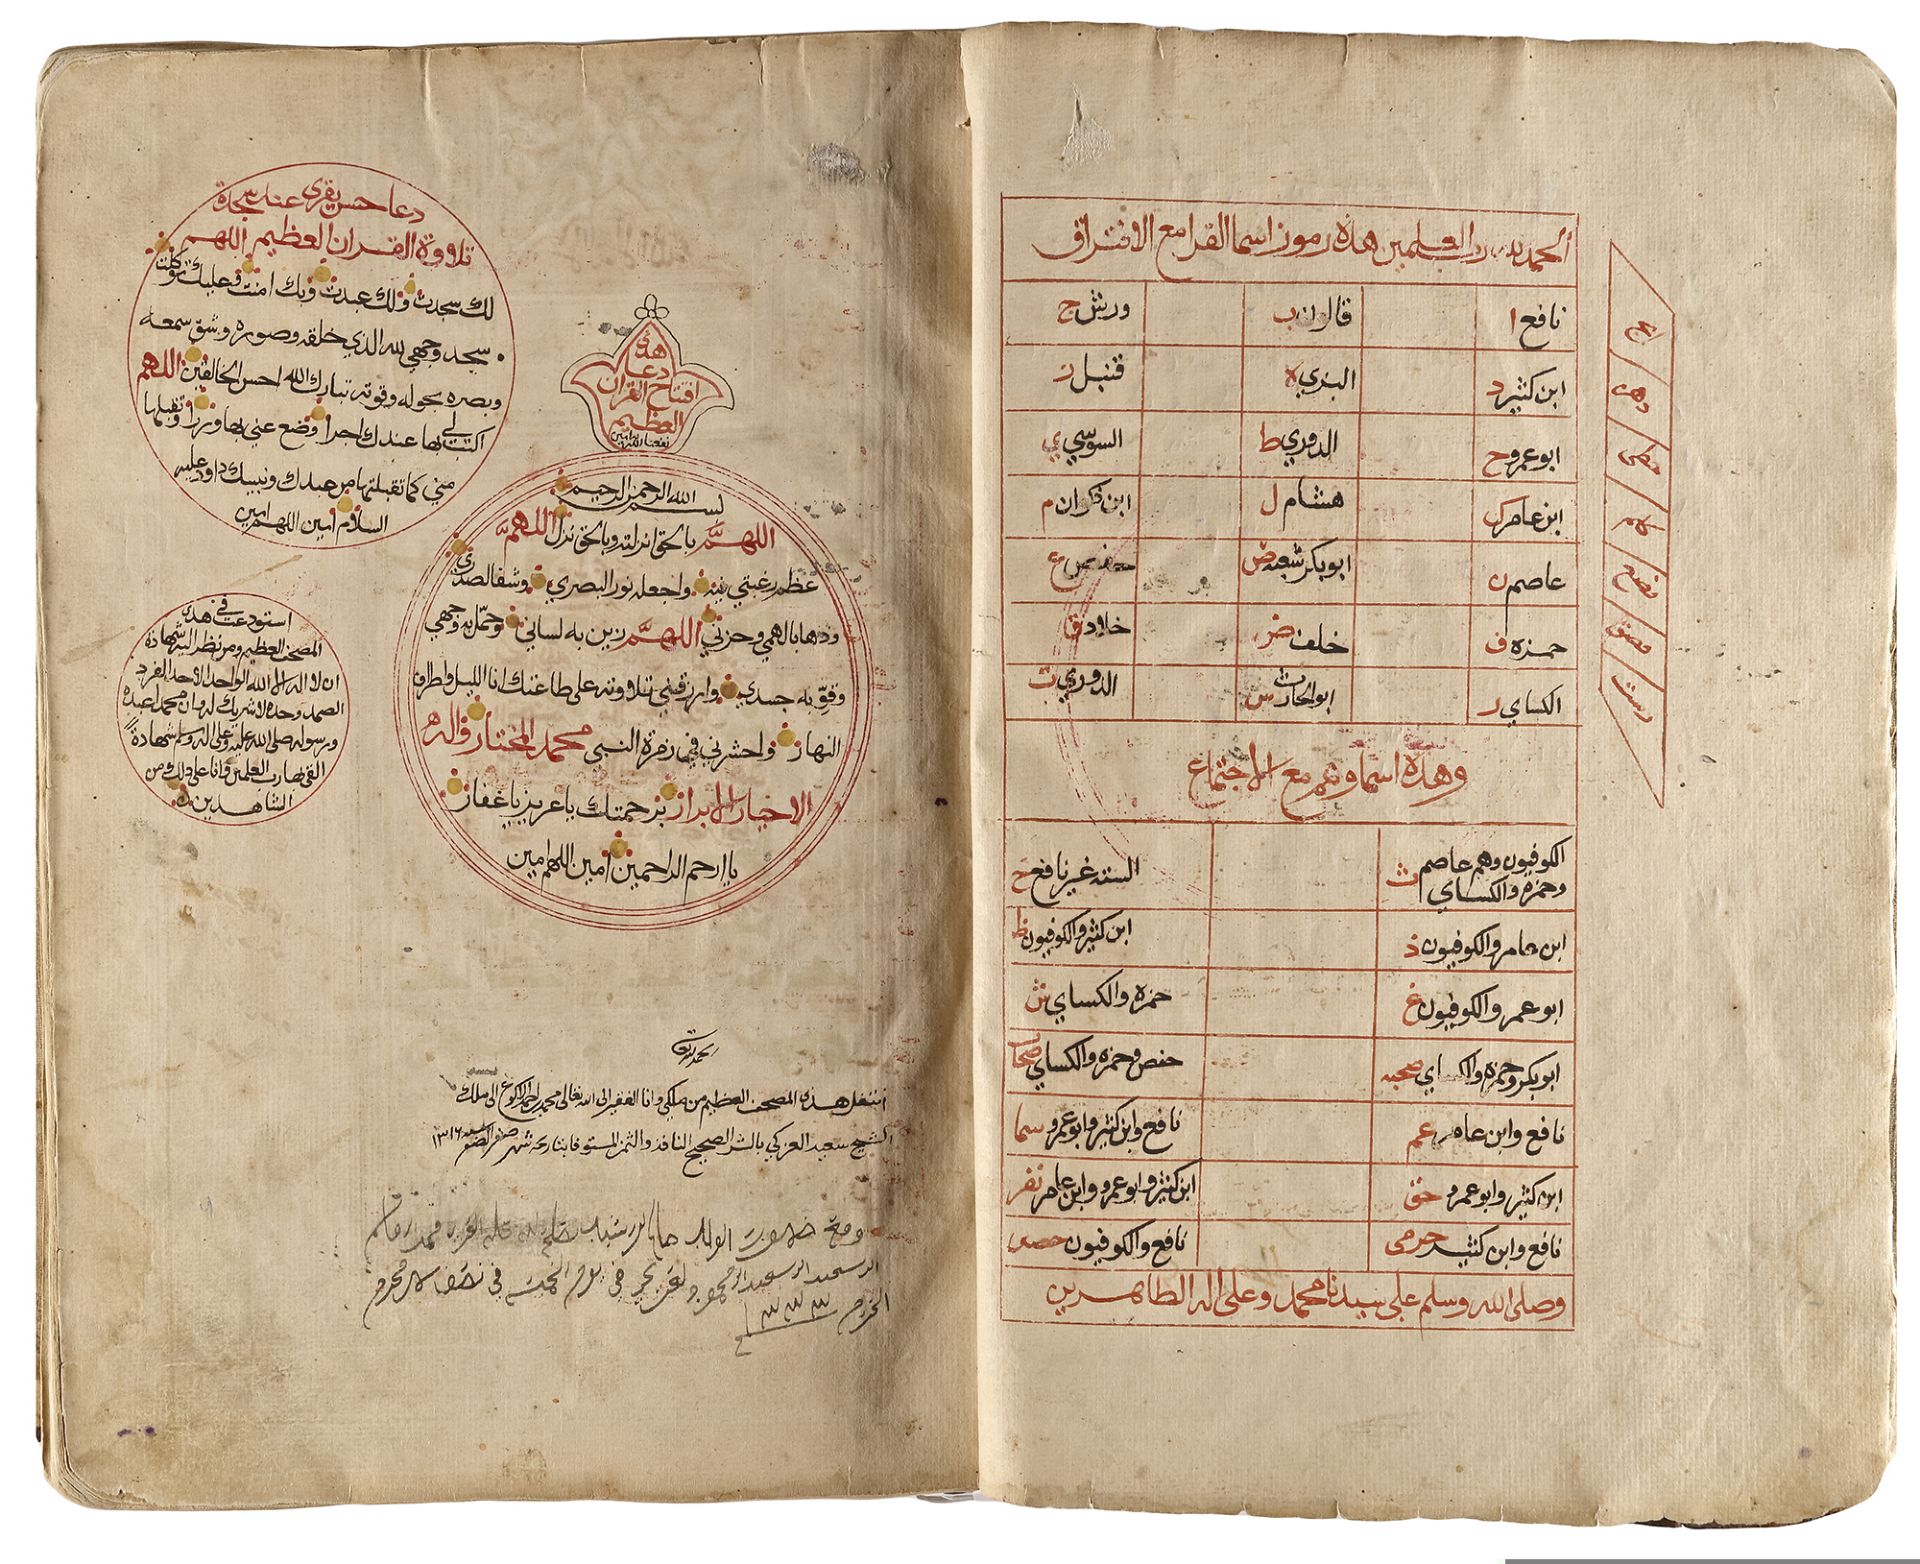 الحمد لله رب العلمين هذه رموز اسما القرا مع الافتراق
نافع ا قالون ب ورش ج
ابن كثير د البزي ه قنبل ز
ابو عمرو ح الدوري ط السوسي ي
ابن عامر ك هشام ل ابن ذكوان م
عاصم ن ابو بكر شعبه ص حفص ع
حمزه ف خلف ض خلاد ق
الكساي ر ابو الحارث س الدوري ت
ابج
دهز
حطي
كلم
نصع
فضق
رست
وهذه اسماوهم مع الاجتماع
الكوفيون وهم عاصم وحمزه والكساي ث الستة غير نافع خ
ابن عامر والكوفيون ذ ابن كثير والكوفيون ظ
ابو عمر والكوفيون غ حمزه والكساي ش
ابو بكر وحمزه والكساي صحبه حفص وحمزه والكساي صحاب
نافع وابن عامر عم نافع وابن كثير وابو عمرو سما
ابن كثير وابو عمرو حق ابن كثير وابو عمرو وابن عامر نفر
نافع وابن كثير حرمى نافع والكوفيون حصن
وصلى الله وسلم على سيدنا محمد وعلى اله الطاهرين
دعا حسن يقرى عند سجدة
تلاوة القران العظيم اللهم
لك سجدت ولك عبدت وبك امنت وعليك توكلت
سجد وجهي لله الذي خلقه وصوره وشق سمعه
وبصره بحوله وقوته تبارك الله احسن الخالقين اللهم
اكتب لي بها عندك اجرا وضع عني بها وزرا وتقبلها
مني كما تقبلتها من عبدك ونبيك داود عليه
السلام امين اللهم امين
هذا
دعا
افتتاح القران
العظيم
نفعنا الله به امين
بسم الله الرحمن الرحيم
اللهم بالحق انزلته وبالحق نزل اللهم
عظم رغبتي فيه واجعله نور البصري وشفا لصدري
وذهابا لهمي وحزني اللهم زين به لساني وجمل به وجهي
وقو به جسدي وارزقني تلاوته على طاعتك انا الليل واطراف
النهار واحشرني في زمرة النبي محمد المختار واله
الاخيار الابرار برحمتك يا عزيز يا غفار
يا ارحم الراحمين امين اللهم امين
استودعت في هذا
المصحف العظيم ومن نظر اليه شهادة
ان لا اله الا الله الواحد الاحد الفرد
الصمد وحده لا شريك له وان محمد عبده
ورسوله صلى الله عليه وعلى اله وسلم شهادة
القى بها رب العلمين وانا على ذلك من
الشاهدين
الحمد لله
انتقل هذا المصحف العظيم من ملكي وانا الفقير الى الله تعالى محمد الاكوع الى ملك
الشيخ سعيد العزكي بالشرا الصحيح النافذ والثمن المستوفا بتاريخه شهر صفر سنه ١٣١٦